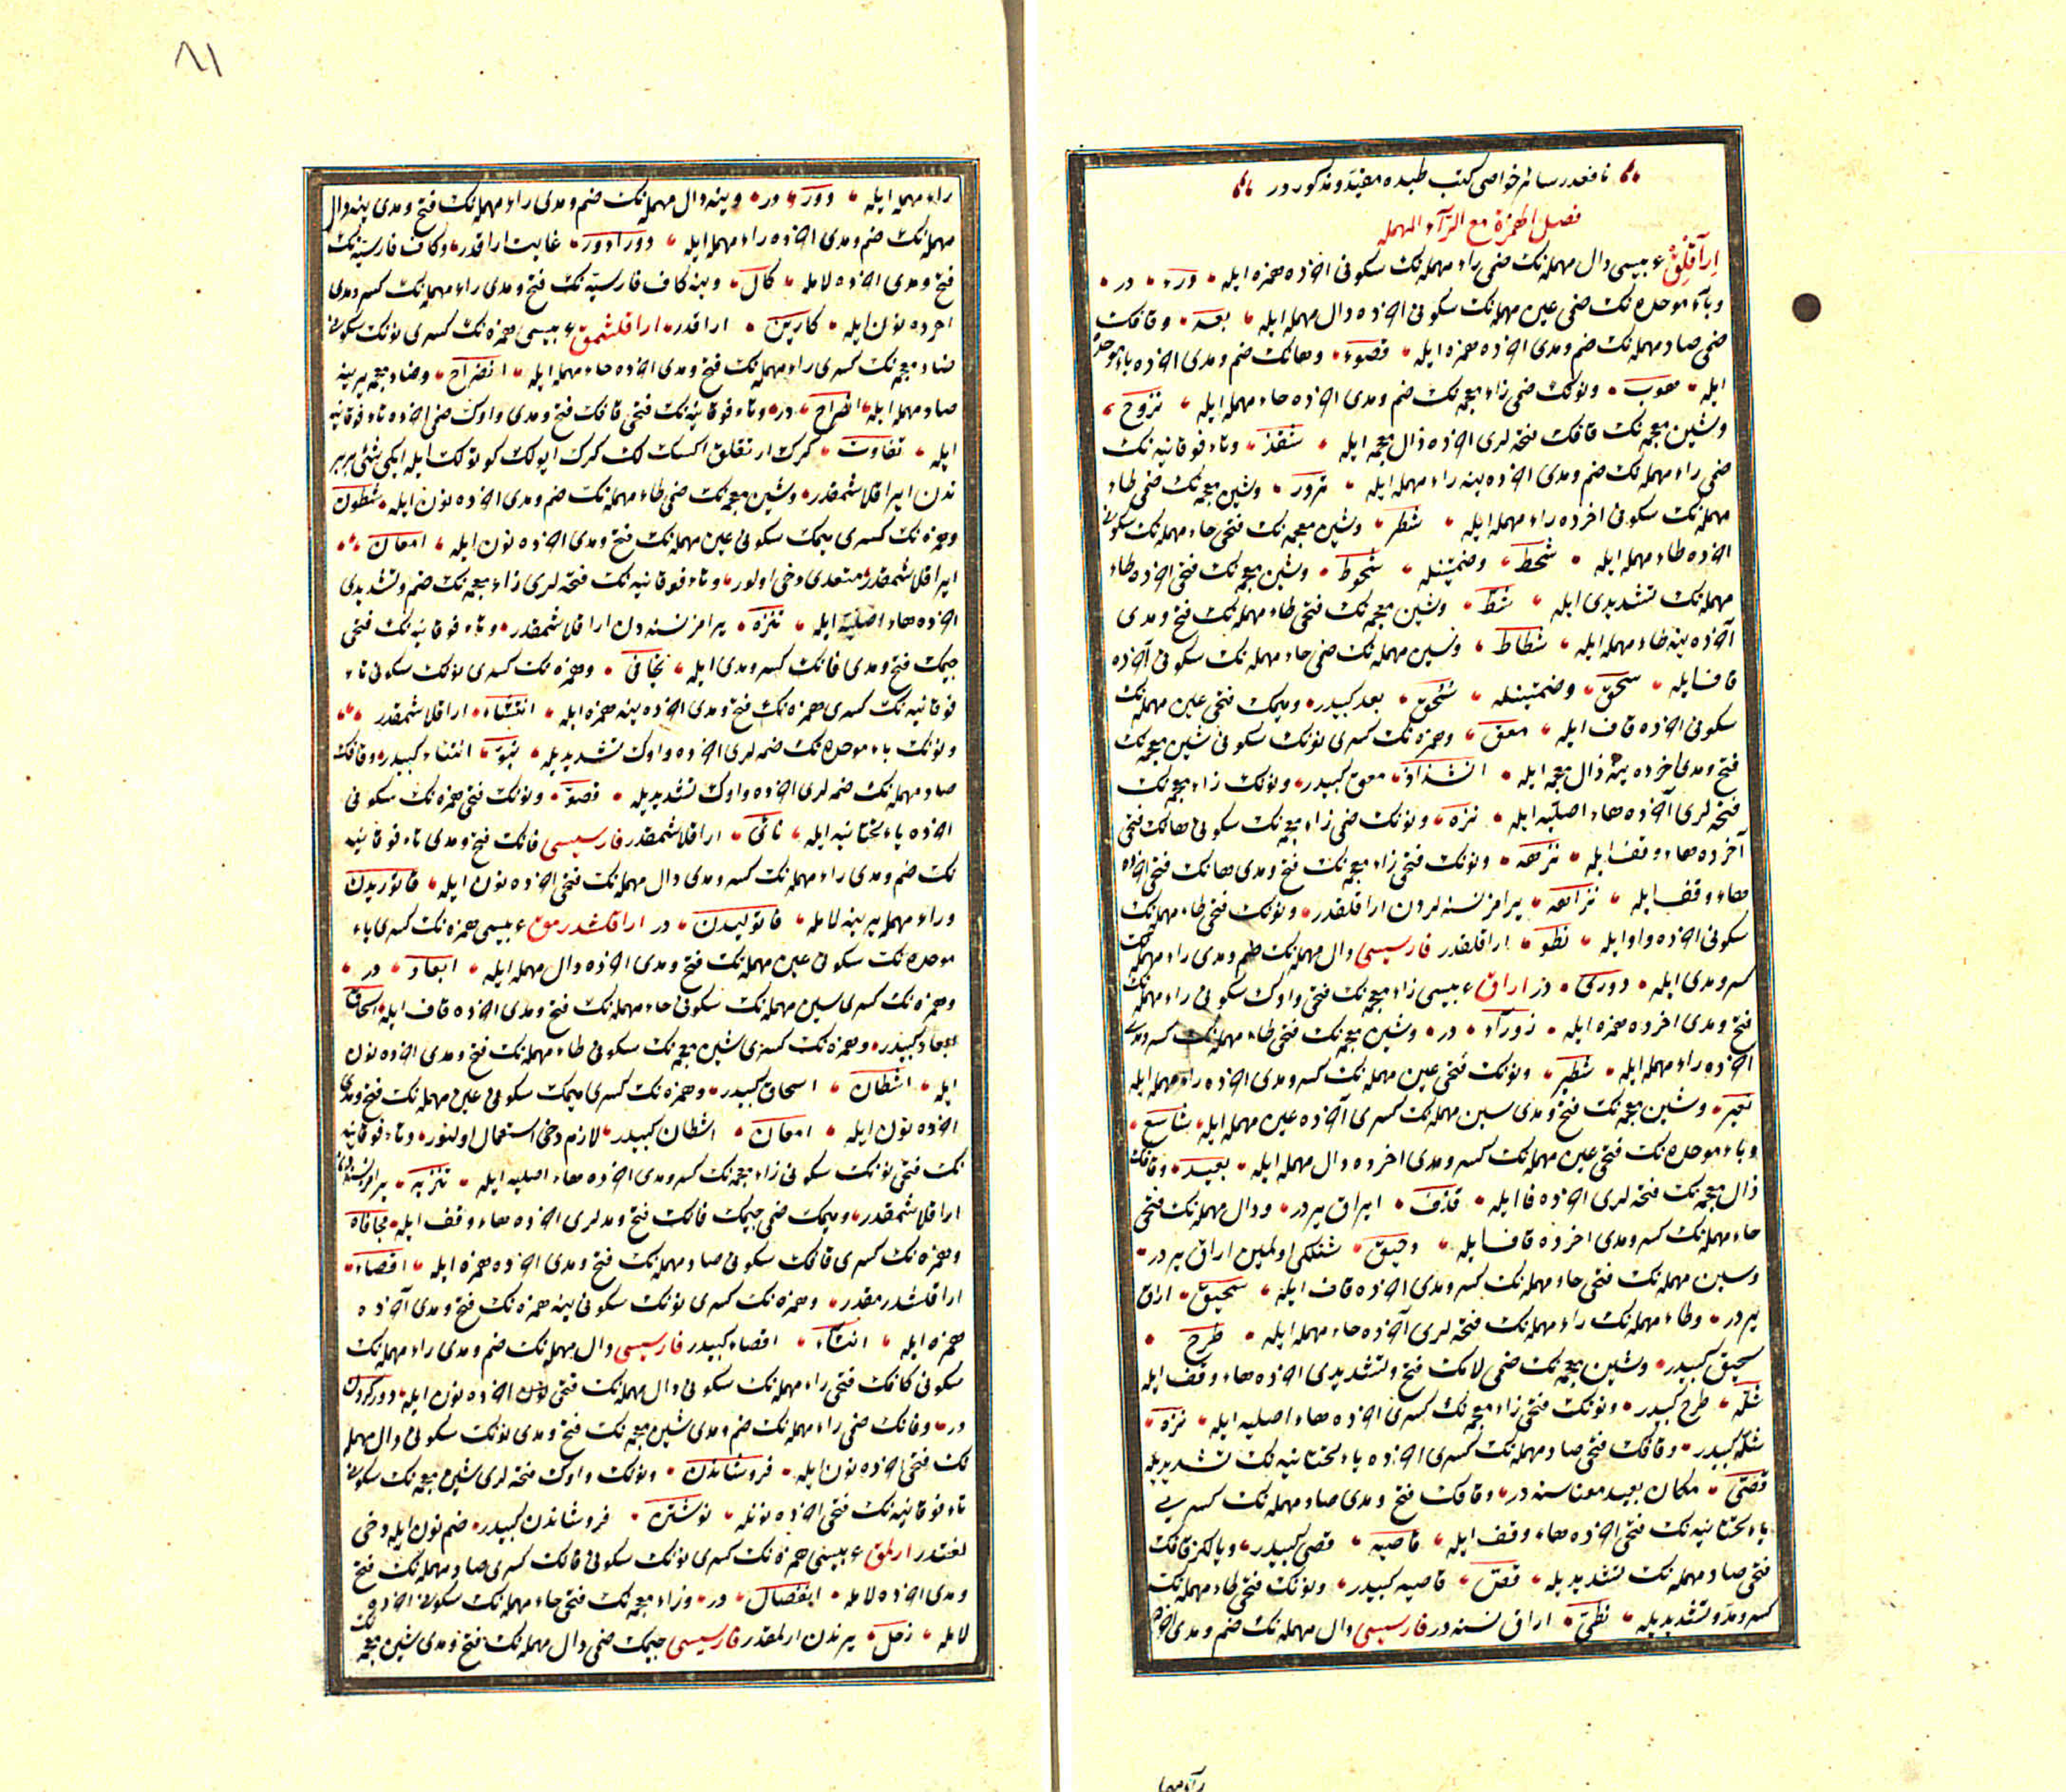 نافعدر سائر خواصى كتب طبده مفيد و مذكوردر
فصل الهمزة مع الرّآء المهمله
اِراَقلِق عربيسى دال مهمله نك ضمى راء مهمله نك سكونى آخرنده همزه ايله درء در
و باء موحده نك ضمى عين مهمله نك سكونى آخرنده دال مهمله ايله بعد و قافك
ضمى صاد مهمله نك ضم و مدى آخرنده همزه ايله قصوء و هانك ضم و مدى آخرنده باء موحده
ايله هوب و نونك ضمى زاء معجمه نك ضم و مدى آخرنده حاء مهمله ايله نزوح
و شين معجمه نك قافك فتحه لرى آخرنده ذال معجمه ايله شقذ و تاء فوقانيه نك
ضمى راء مهمله نك ضم و مدى آخرنده ينه راء مهمله ايله ترور و شين معجمه نك ضمى طاء
مهمله نك سكونى آخرده راء مهمله ايله شطر و شين معجمه نك فتحى حاء مهمله نك سكونى
آخرنده طاء مهمله ايله شحط و ضمتينله شحوط و شين معجمه نك فتحى آخرنده طاء
مهمله نك تشديدى ايله شطّ و شين معجمه نك فتحى طاء مهمله نك فتح و مدى
آخرنده ينه طاء مهمله ايله شطاط و سين مهمله نك ضمى حاء مهمله نك سكونى آخرنده
قاف ايله سحق و ضمتينله سُحُق بعد كبيدر و ميمك فتحى عين مهمله نك
سكونى آخرنده قاف ايله معق و همزه نك كسرى نونك سكونى شين معجمه نك
فتح و مدى آخرده ينه ذال معجمه ايله انشذاذ معق كبيدر و نونك زاء معجمه نك
فتحه لرى آخرنده هاء اصليه ايله نزه و نونك ضمى زاء معجمه نك سكونى هانك فتحى
آخرده هاء وقف ايله نزهه و نونك فتحى زاء معجمه نك فتح و مدى هانك فتحى آخرنده
هاء وقف ايله نزاهه يرامز نسنه لردن اراقلقدر و نونك فتحى طاء مهمله نك
سكونى آخرنده واو ايله نطو اراقلقدر فارسيسى دال مهمله نك ضم و مدى راء مهمله نك
كسر و مدى ايله دورى در اراق عربيسى زاء معجمه نك فتحى واوك سكونى راء مهمله نك
فتح و مدى آخرده همزه ايله زورآء در و شين معجمه نك فتحى طاء مهمله نك كسر و مدى
آخرنده راء مهمله ايله شطير و نونك فتحى عين مهمله نك كسر و مدى آخرنده راء مهمله ايله
نعير و شين معجمه نك فتح و مدى سين مهمله نك كسرى آخرنده عين مهمله ايله شاسع
و باء موحده نك فتحى عين مهمله نك كسر و مدى آخرده دال مهمله ايله بعيد و قافك
ذال معجمه نك فتحه لرى آخرنده فا ايله قذف ايراق يردر و دال مهمله نك فتحى
حاء مهمله نك كسر و مدى آخرده قاف ايله دحيق شنلكى اولمين اراق يردر
و سين مهمله نك فتحى حاء مهمله نك كسر و مدى آخرنده قاف ايله سحيق اراق
يردر و طاء مهمله نك راء مهمله نك فتحه لرى آخرنده حاء مهمله ايله طرح
سحيق كبيدر و شين معجمه نك ضمى لامك فتح و تشديدى آخرنده هاء وقف ايله
شلّه طرح كبيدر و نونك فتحى زاء معجمه نك كسرى آخرنده هاء اصليه ايله نزه
شلّه كبيدر و قافك فتحى صاد مهمله نك كسرى آخرنده ياء تحتانيه نك تشديديله
قصىّ مكان بعيد معناسنه در و قافك فتح و مدى صاد مهمله نك كسرى
ياء تحتانيه نك فتحى آخرنده هاء وقف ايله قاصيه قصى كبيدر و ياكز قافك
فتحى صاد مهمله نك تشديديله قصّ قاصيه كبيدر و نونك فتحى طاء مهمله نك
كسر و مد و تشديديله نطىّ اراق نسنه در فارسيسى دال مهمله نك ضم و مدى آخرنده
راء مهمله
٨١
راء مهمله ايله دور در و ينه دال مهمله نك ضم و مدى راء مهمله نك فتح و مدى ينه دال
مهمله نك ضم و مدى آخرنده راء مهمله ايله دورادور غايت اراقدر و كاف فارسيه نك
فتح و مدى آخرنده لامله كال و ينه كاف فارسيه نك فتح و مدى راء مهمله نك كسر و مدى
آخرده نون ايله كارين اراقدر اراقلشمق عربيسى همزه نك كسرى نونك سكونى
ضاد معجمه نك كسرى راء مهمله نك فتح و مدى آخرنده حاء مهمله ايله انضراح و ضاد معجمه يرينه
صاد مهمله ايله انصراح در و تاء فوقانيه نك فتحى فانك فتح و مدى واوك ضمى آخرنده تاء فوقانيه
ايله تفاوت كرك ارتقلق اكسكلك كرك ايولك كوتولك ايله ايكى شئى بربر
ندن ايراقلاشمقدر و شين معجمه نك ضمى طاء مهمله نك ضم و مدى آخرنده نون ايله شطون
و همزه نك كسرى ميمك سكونى عين مهمله نك فتح و مدى آخرنده نون ايله امعان
ايراقلاشمقدر متعدى دخى اولور و تاء فوقانيه نك فتحه لرى زاء معجمه نك ضم و تشديدى
آخرنده هاء اصليه ايله تنزّه يرامز نسنه دن اراقلاشمقدر و تاء فوقانيه نك فتحى
جيمك فتح و مدى فانك كسر و مدى ايله تجافى و همزه نك كسرى نونك سكونى تاء
فوقانيه نك كسرى همزه نك فتح و مدى آخرنده ينه همزه ايله انتئاء اراقلاشمقدر
و نونك باء موحده نك ضمه لرى آخرنده واوك تشديديله نبوّ انتئاء كبيدر و قافك
صاد مهمله نك ضمه لرى آخرنده واوك تشديديله قصوّ و نونك فتحى همزه نك سكونى
آخرنده ياء تحتانيه ايله نائى اراقلاشمقدر فارسيسى فانك فتح و مدى تاء فوقانيه
نك ضم و مدى راء مهمله نك كسر و مدى دال مهمله نك فتحى آخرنده نون ايله فاتوريدن
و راء مهمله يرينه لامله فاتوليدن در اراقلشدرمق عربيسى همزه نك كسرى باء
موحده نك سكونى عين مهمله نك فتح و مدى آخرنده دال مهمله ايله ابعاد در
و همزه نك كسرى سين مهمله نك سكونى حاء مهمله نك فتح و مدى آخرنده قاف ايله اسحاق
ابعاد كبيدر و همزه نك كسرى شين معجمه نك سكونى طاء مهمله نك فتح و مدى آخرنده نون
ايله اشطان اسحاق كبيدر و همزه نك كسرى ميمك سكونى عين مهمله نك فتح و مدى
آخرنده نون ايله امعان اشطان كبيدر لازم دخى استعمال اولنور و تاء فوقانيه
نك فتحى نونك سكونى زاء معجمه نك كسر و مدى آخرنده هاء اصليه ايله تنزيه يرامز نسنه دن
اراقلاشمقدر و ميمك ضمى جيمك فانك فتح و مدلرى آخرنده هاء وقف ايله مجافاه
و همزه نك كسرى قافك سكونى صاد مهمله نك فتح و مدى آخرنده همزه ايله اقصاء
اراقلشدرمقدر و همزه نك كسرى نونك سكونى ينه همزه نك فتح و مدى آخرنده
همزه ايله انئاء اقصاء كبيدر فارسيسى دال مهمله نك ضم و مدى راء مهمله نك
سكونى كافك فتحى راء مهمله نك سكونى دال مهمله نك فتحى آخرنده نون ايله دور كردن
در و فانك ضمى راء مهمله نك ضم و مدى شين معجمه نك فتح و مدى نونك سكونى دال مهمله
نك فتحى آخرنده نون ايله فروشاندن و نونك واوك فتحه لرى شين معجمه نك سكونى
تاء فوقانيه نك فتحى آخرنده نونله نوشتن فروشاندن كبيدر ضم نون ايله دخى
لغتدر ارلمق عربيسى همزه نك كسرى نونك سكونى فانك كسرى صاد مهمله نك فتح
و مدى آخرنده لامله انفصال در و زاء معجمه نك فتحى حاء مهمله نك سكونى آخرنده
لامله زحل يرندن ارلمقدر فارسيسى جيمك ضمى دال مهمله نك فتح و مدى شين معجمه نك